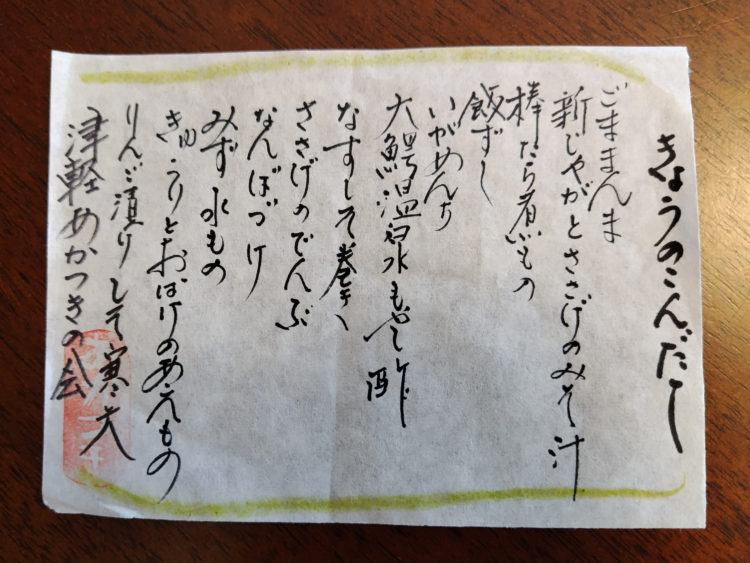 きょうのこんだて
ごままんま
新じゃがとささげのみそ汁
棒たら煮もの
飯ずし
いがめんち
大鰐温泉もやし酢
なすしそ巻き
ささげのでんぶ
なんばづけ
みず水もの
きゅうりとおばけのあえもの
りんご漬け しそ寒天
津軽あかつきの会